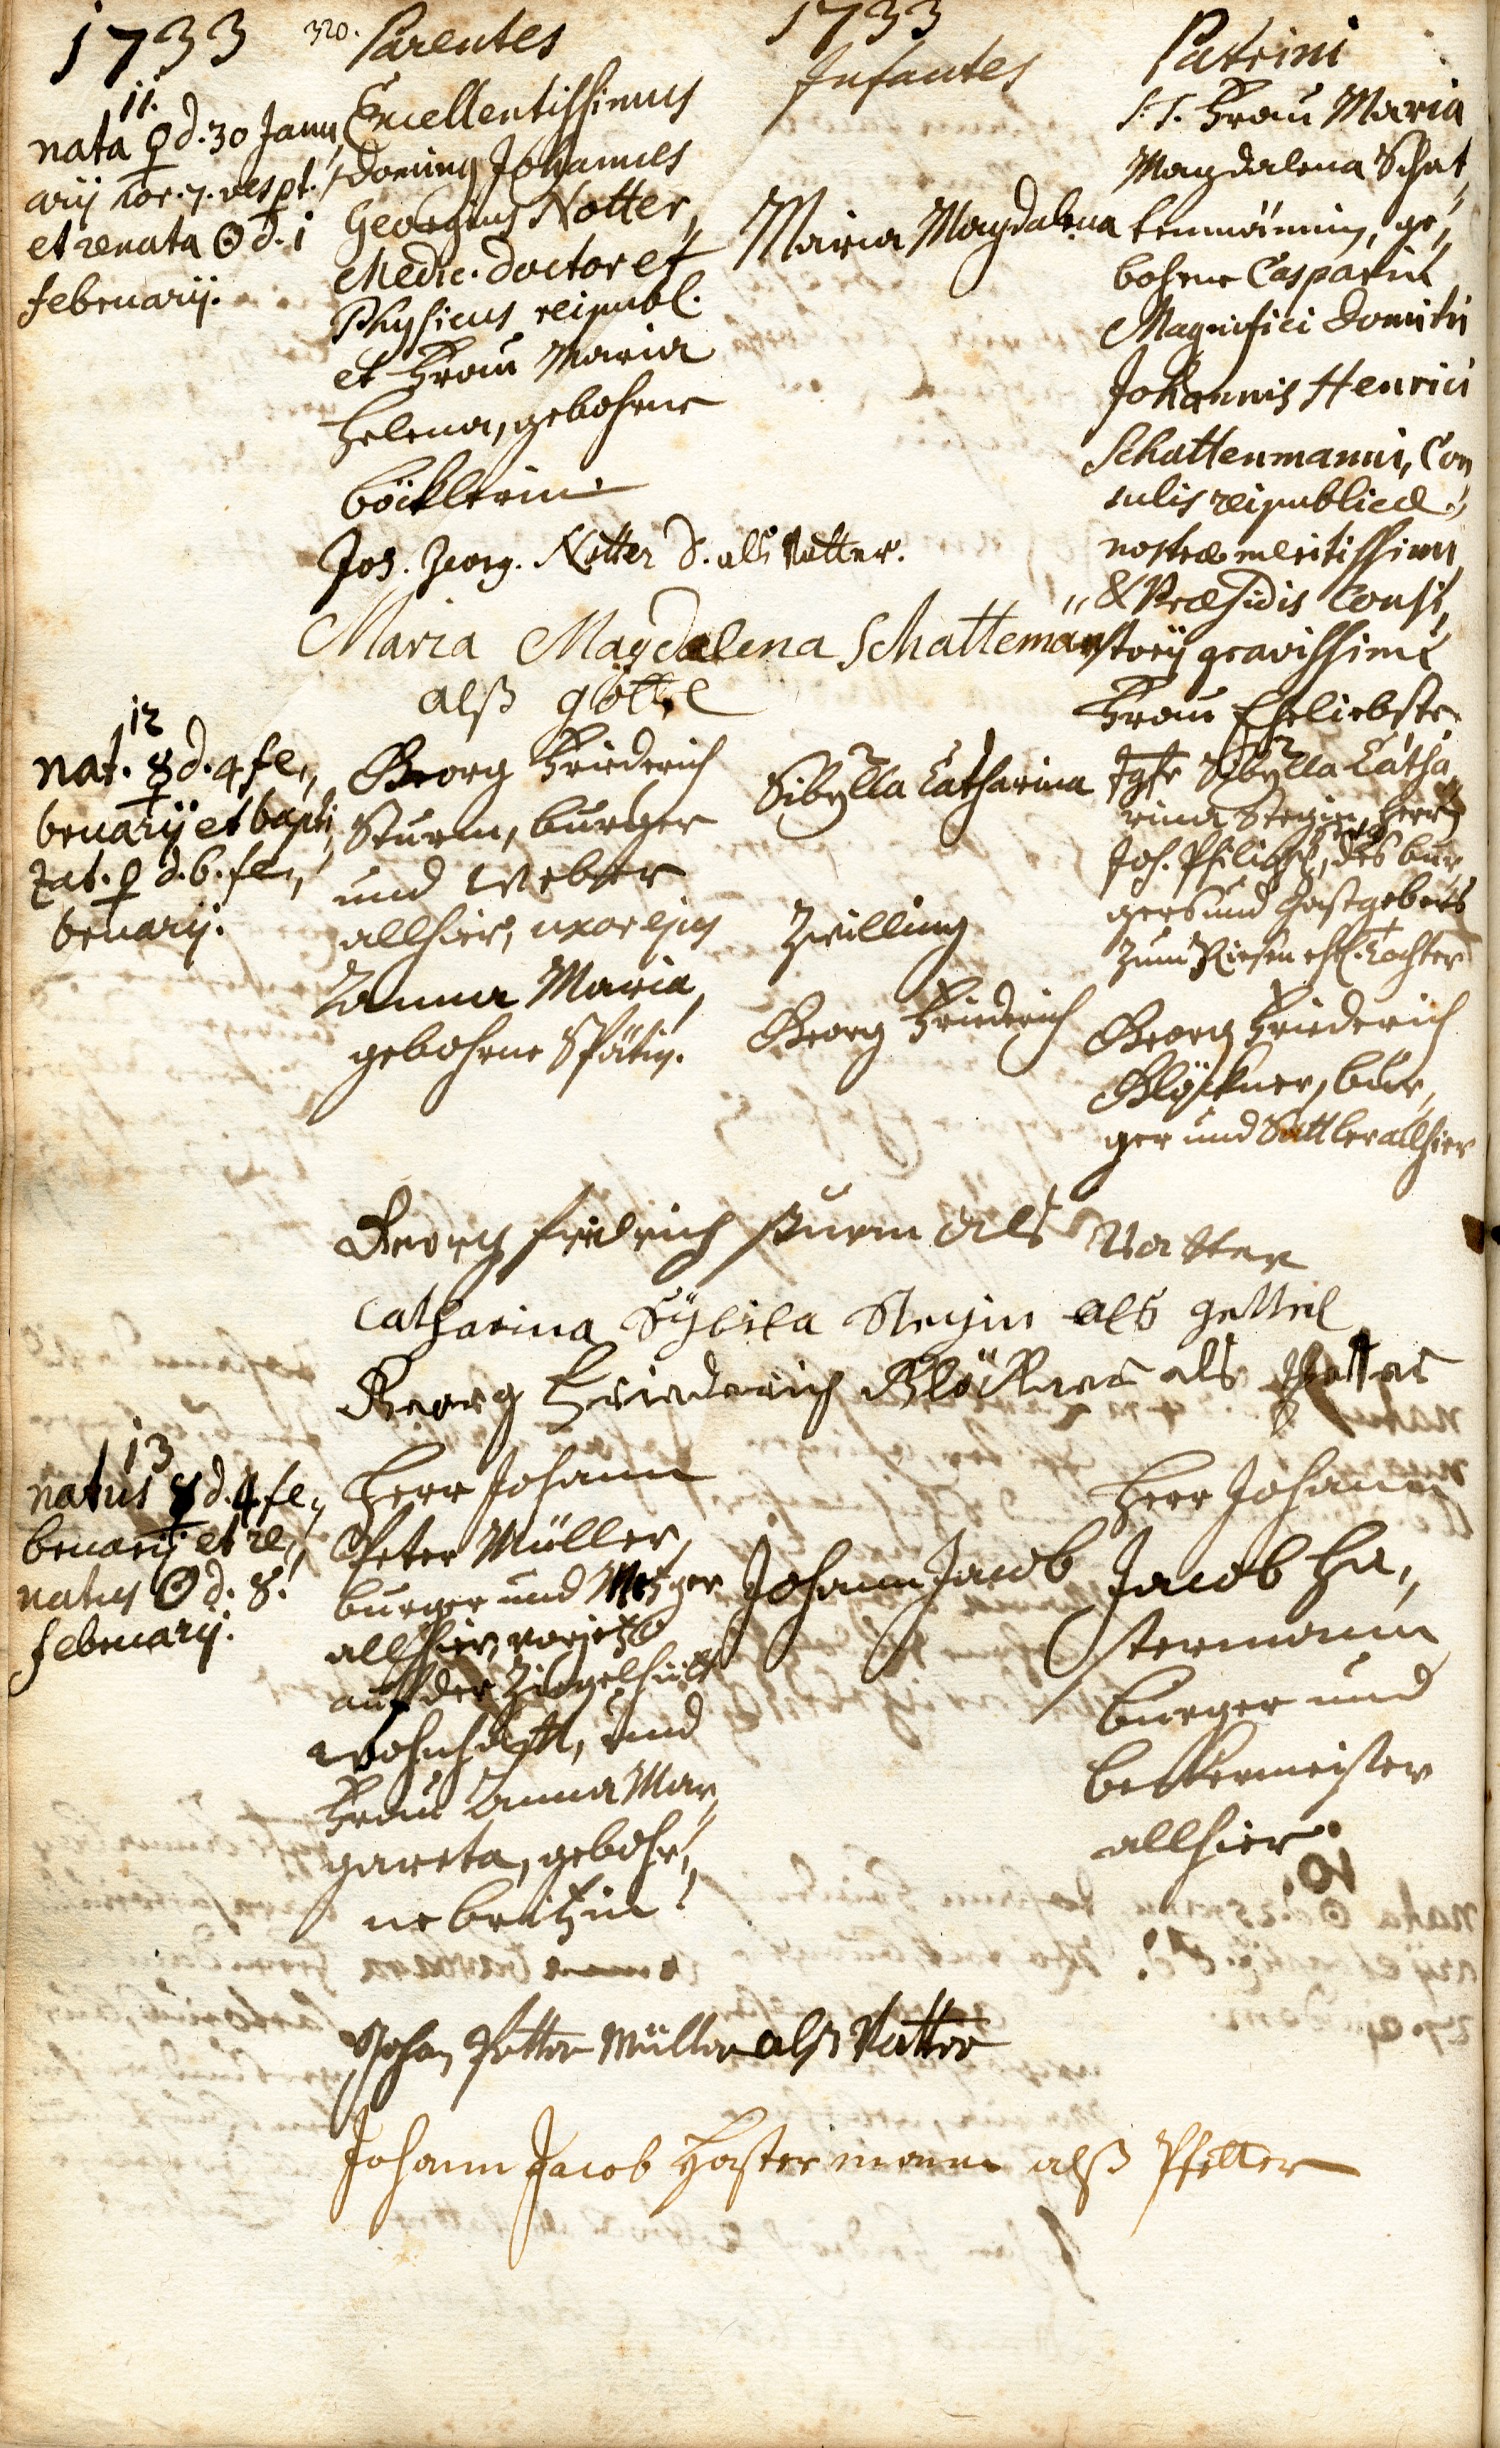 1733
320.
Parentes
1733
Infantes
Patrini
11.
nata ♀ d. 30 Janu,
arij hor. 7. vespt.
et renata ☉ d. 1
februarij.
Excellentissimus
dominus Johannes
Georgius Notter,
Medic. doctor et
Physicus reipubl.
et Frau Maria
Helena, gebohrne
böcklerin.
Maria Magdalena
S. T. Frau Maria
Magdalena Schat,,
tenmännin, ge,,
bohrne Casparin
Magnifici Domini
Johannis Henrici
Schattenmanni, Con
sulis reipublicæ,,
nostræ meritissimi
,, & Præsidis Consi,
storij gravissimi
Frau Eheliebste
Joh. Georg. Notter D. als Vatter.
Maria Magdalena Schatteman
alß göttel
12
nat. ☿ d. 4 fe,,
bruarij et bapti,
zat. ♀ d. 6. fe,,
bruarij.
Georg Friederich
Sturm, burger
und Weber
allhier, uxor ejus
Anna Maria,
gebohrne Spätin.
Sibylla Catharina
Zwilling
Georg Friederich
Jgfr Sibylla Catha,
rina Stegin, Herrn
Joh. Philipps, des bur,
gers und Gastgebers
zum Riesen ehl. Tochter
Georg Friederich
Glöckner, bur,
ger und Sattler allhier
Georg fridrich sturm als Vatter
Catharina Sÿbila Stegin als gettel
Georg Friederich Glöckner als Pfetter
13
natus ☿ d. 4 fe,,
bruarij et re,,
natus ☉ d. 8.
februarij.
Herr Johann
Peter Müller,
burger und Metzger
allhier, vorjetzo
auf der Ziegelhütt
wohnhafft, und
Frau Anna Mar,,
gareta, gebohr,,
ne britzin.
Johann Jacob
Herr Johann
Jacob Ha,,
stermann
burger und
beckermeister
allhier.
Johan Petter Müller alß Vatter
Johann Jacob Hastermann alß Pfetter